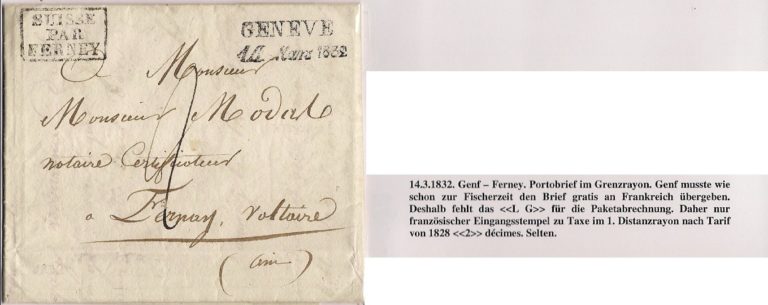 SUISSE
PAR
FERNEY
GENEVE
14 Mars 1832
A Monsieur
Monsieur Modas
notaire Certificateur
a Fernay, Voltaire
(ain)
14.3.1832. Genf – Ferney. Portobrief im Grenzrayon. Genf musste wie
schon zur Fischerzeit den Brief gratis an Frankreich übergeben.
Deshalb fehlt das <<L G>> für die Paketabrechnung. Daher nur
französischer Eingangsstempel zu Taxe im 1. Distanzrayon nach Tarif
von 1828 <<2>> décimes. Selten.